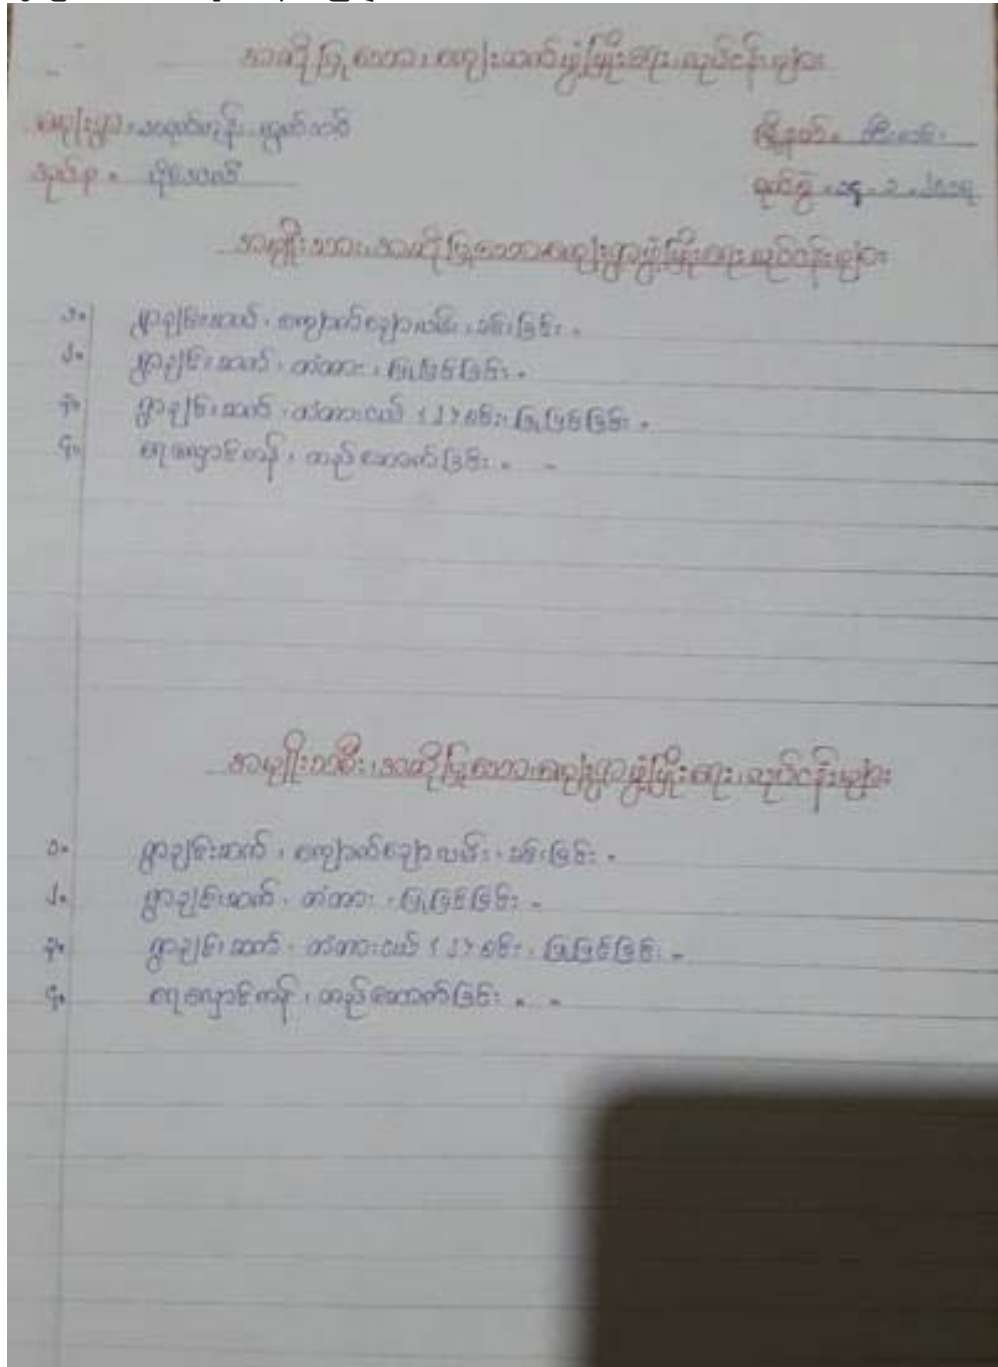 အဆိုပြုသော၊ကျေးရွာဖွံ့ဖြိုးရေး၊လုပ်ငန်းများ
ကျေးရွာ
မြို့နယ်
အုပ်စု
ရက်စွဲ
အမျိုးသား၊အဆိုပြုသောကျေးရွာဖွံ့ဖြိုးရေး၊လုပ်ငန်းများ
၁။ ရွာချင်းဆက်၊ ကျောက်ချောလမ်း၊ခင်းခြင်း။
၂။ ရွာချင်းဆက်၊ တံတား၊ပြုပြင်ခြင်း။
၃။ ရွာချင်းဆက်၊ တံတားငယ် (၂) စင်း၊ပြုပြင်ခြင်း။
၄။ ရေလှောင်ကန်၊ တည်ဆောက်ခြင်း။
အမျိုးသမီး၊အဆိုပြုသော၊ကျေးရွာဖွံ့ဖြိုးရေး၊လုပ်ငန်းများ
၁။ ရွာချင်းဆက်၊ ကျောက်ချောလမ်း၊ခင်းခြင်း။
၂။ ရွာချင်းဆက်၊ တံတား၊ပြုပြင်ခြင်း။
၃။ ရွာချင်းဆက်၊ တံတားငယ် (၂) စင်း၊ပြုပြင်ခြင်း။
၄။ ရေလှောင်ကန်၊ တည်ဆောက်ခြင်း။